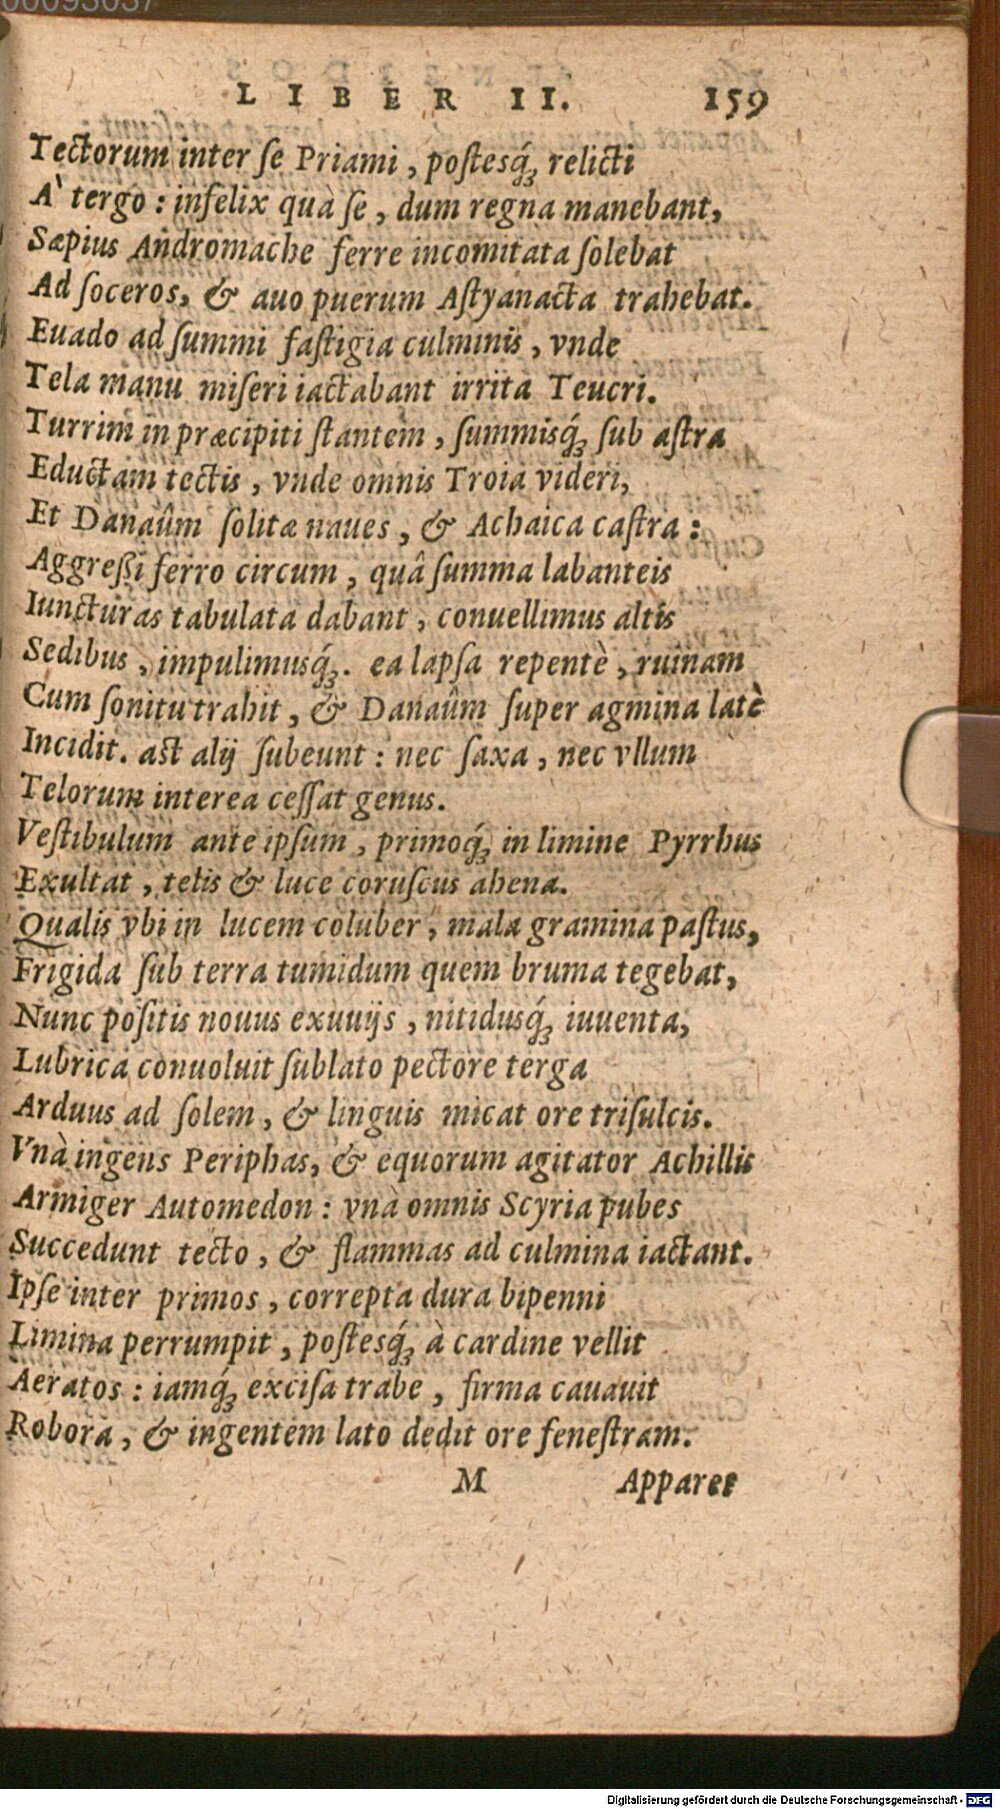 LIBER II. 159
Tectorum inter ſe Priami, poſtesq́ꝫ relicti
A` tergo: infelix quà ſe, dum regna manebant,
Sæpius Andromache ferre incomitata ſolebat
Ad ſoceros, & auo puerum Aſtyanacta trahebat.
Euado ad ſummi faſtigia culminis, vnde
Tela manu miſeri iactabant irrita Teucri.
Turrim in præcipiti ſtantem, ſummisq́ꝫ ſub aſtra
Eductam tectis, vnde omnis Troia videri,
Et Danaûm ſolitæ naues, & Achaica caſtra:
Aggreßi ferro circum, quâ ſumma labanteis
Iuncturas tabulata dabant, conuellimus altis
Sedibus, impulimusq́ꝫ. ea lapſa repentè, ruinam
Cum ſonitu trahit, & Danaûm ſuper agmina latè
Incidit. aſt alij ſubeunt: nec ſaxa, nec vllum
Telorum interea ceſſat genus.
Veſtibulum ante ipſum, primoq́ꝫ in limine Pyrrhus
Exultat, telis & luce coruſcus ahena.
Qualis vbi in lucem coluber, mala gramina paſtus,
Frigida ſub terra tumidum quem bruma tegebat,
Nunc poſitis nouus exuuijs, nitidusq́ꝫ iuuenta,
Lubrica conuoluit ſublato pectore terga
Arduus ad ſolem, & linguis micat ore triſulcis.
Vnà ingens Periphas, & equorum agitator Achillis
Armiger Automedon: vnà omnis Scyria pubes
Succedunt tecto, & flammas ad culmina iactant.
Ipſe inter primos, correpta dura bipenni
Limina perrumpit, poſtesq́ꝫ à cardine vellit
Aeratos: iamq́ꝫ exciſa trabe, firma cauauit
Robora, & ingentem lato dedit ore feneſtram.
M Apparet
Digitalisierung gefördert durch die Deutsche Forschungsgemeinschaft - DFG